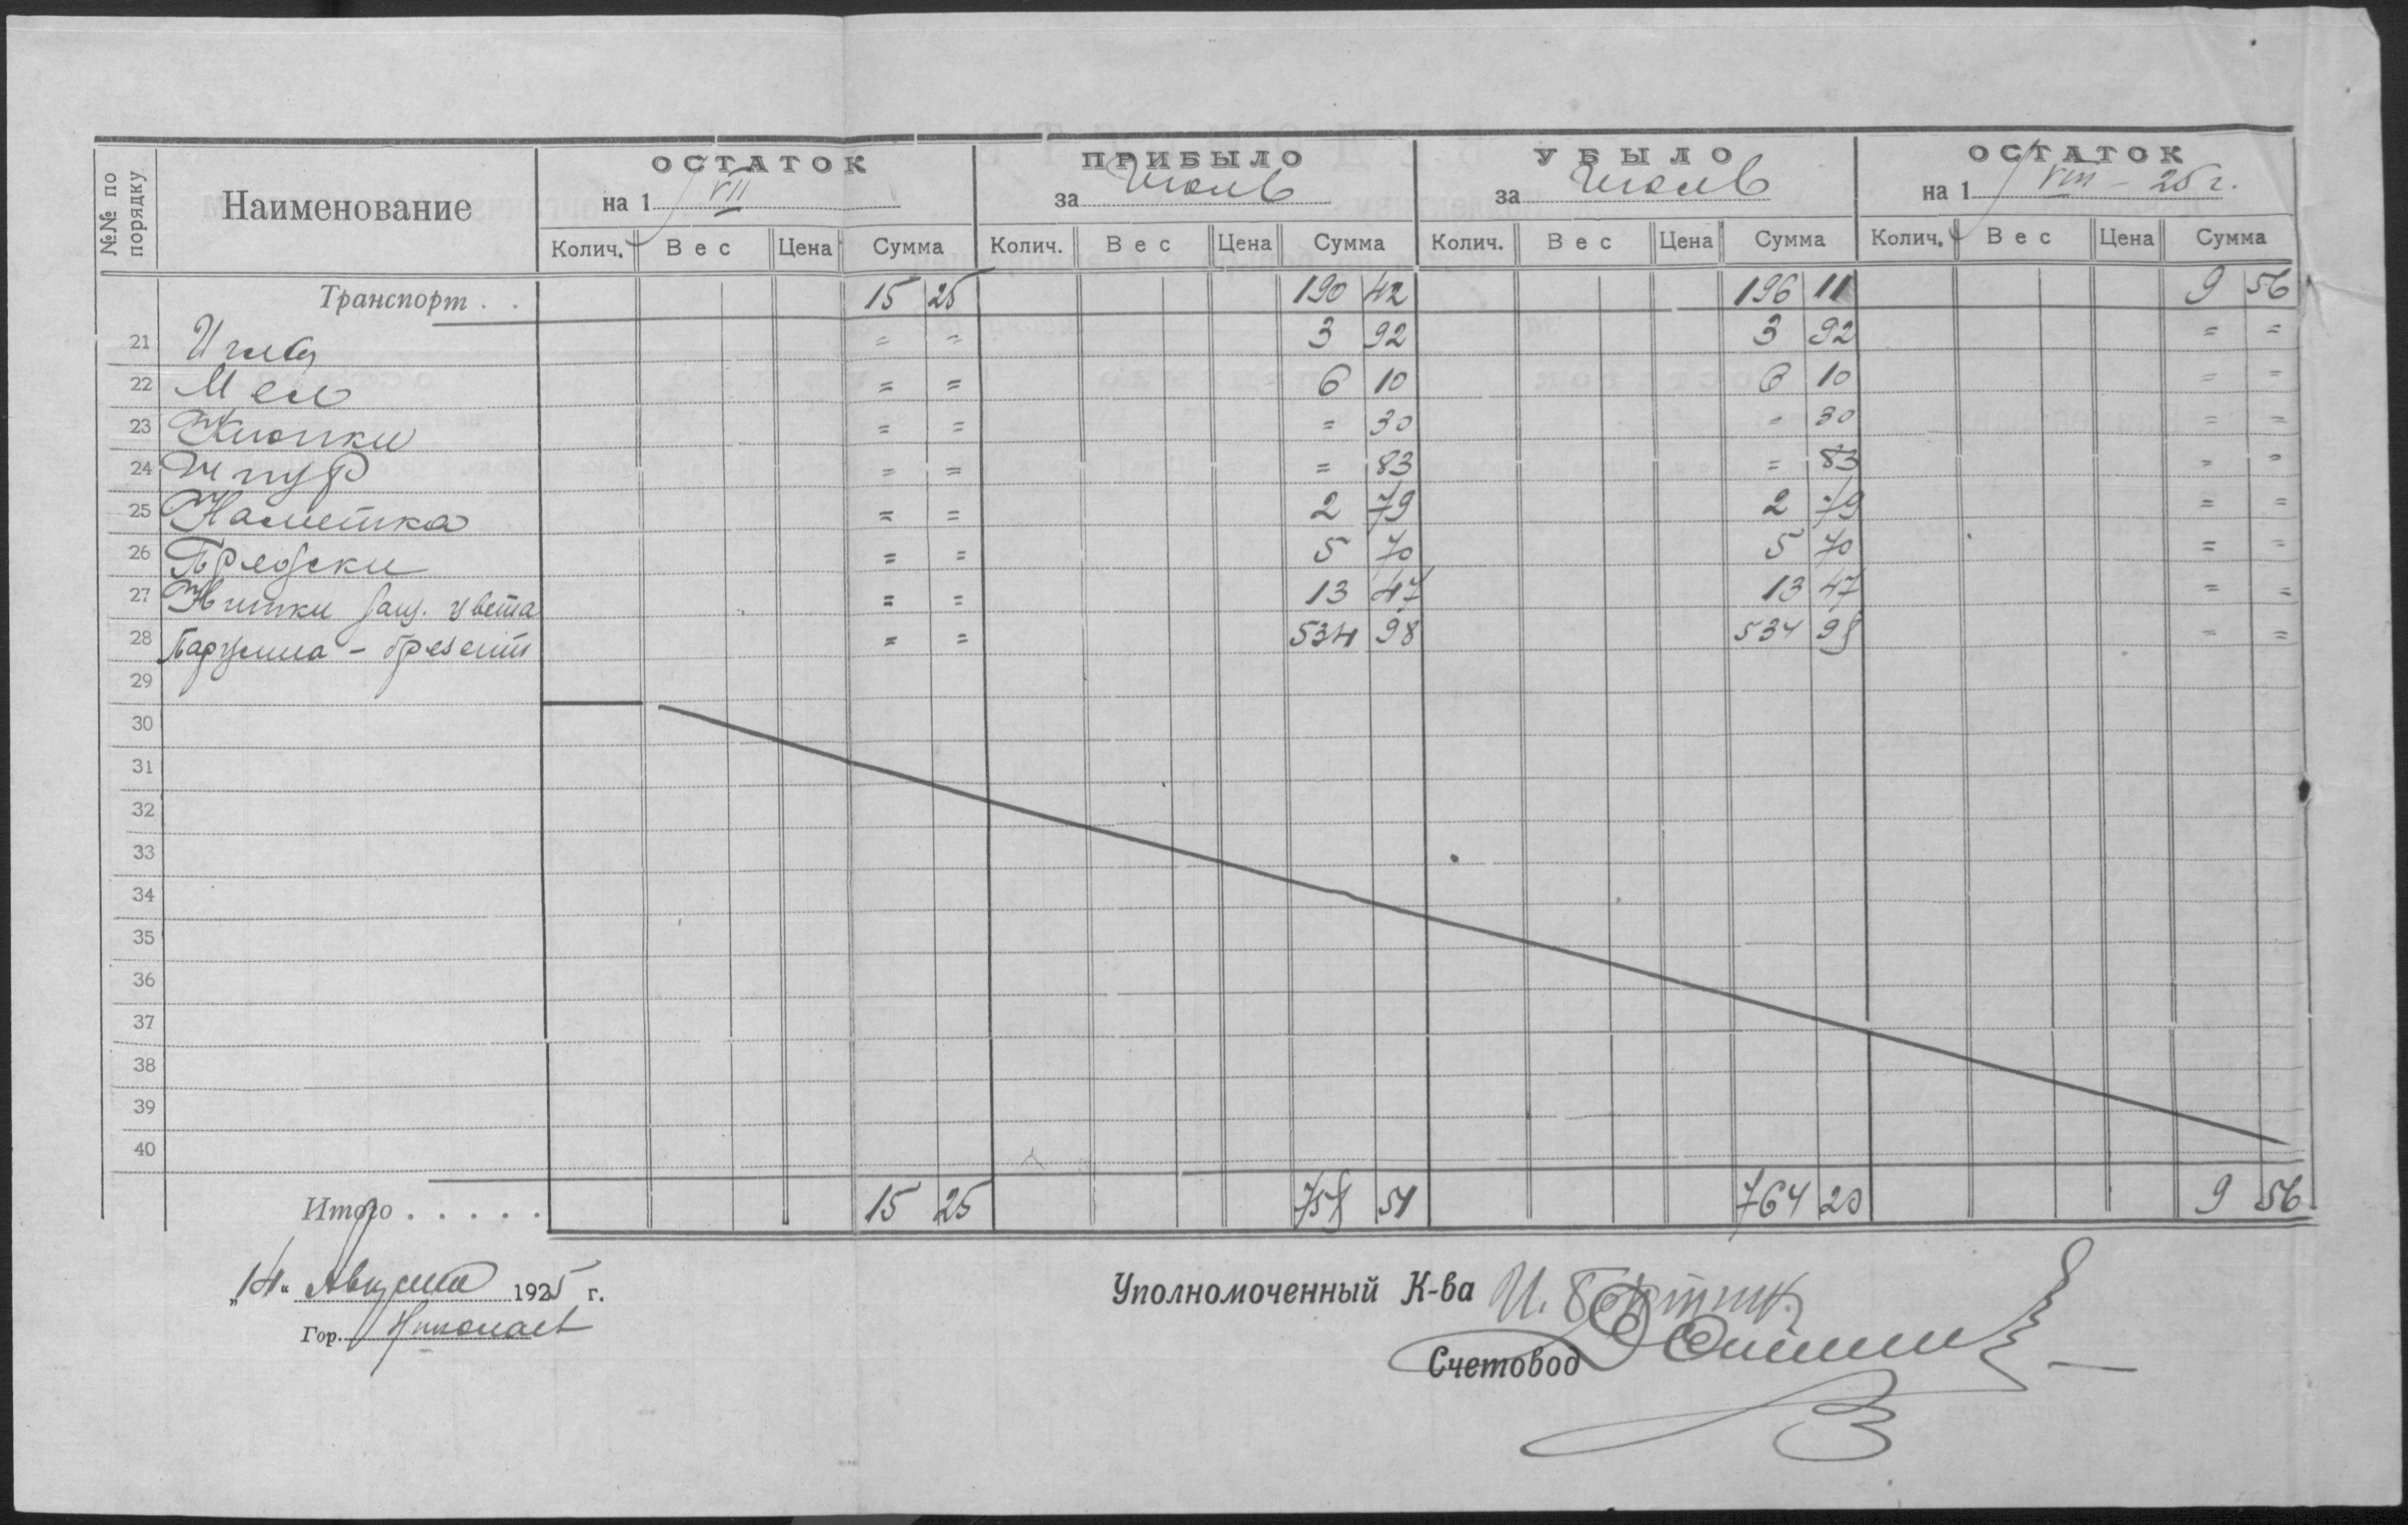 №№ по порядку | Наименование | ОСТАТОК на 1/VII | ПРИБЫЛО за Июль | УБЫЛО за Июль | ОСТАТОК на 1/VIII – 25 г.
Колич. | Вес | Цена | Сумма | Колич. | Вес | Цена | Сумма | Колич. | Вес | Цена | Сумма | Колич. | Вес | Цена | Сумма
Транспорт . . 15 25 | 190 42 | 196 11 | 9 56
21 Иглы = = | 3 92 | 3 92 | = =
22 Мел = = | 6 10 | 6 10 | = =
23 Кнопки = = | = 30 | = 30 | = =
24 Шнур = = | = 83 | = 83 | = =
25 Наметка = = | 2 79 | 2 79 | = =
26 = = | 5 70 | 5 70 | = =
27 Нитки защ. цвета = = | 13 47 | 13 47 | = =
28 Парусина – брезент = = | 534 98 | 534 98 | = =
29
30
31
32
33
34
35
36
37
38
39
40
Итого . . . . . 15 25 | 758 51 | 764 20 | 9 56
„14“ Августа 1925 г.
Гор. Николаев
Уполномоченный К-ва И.
Счетовод